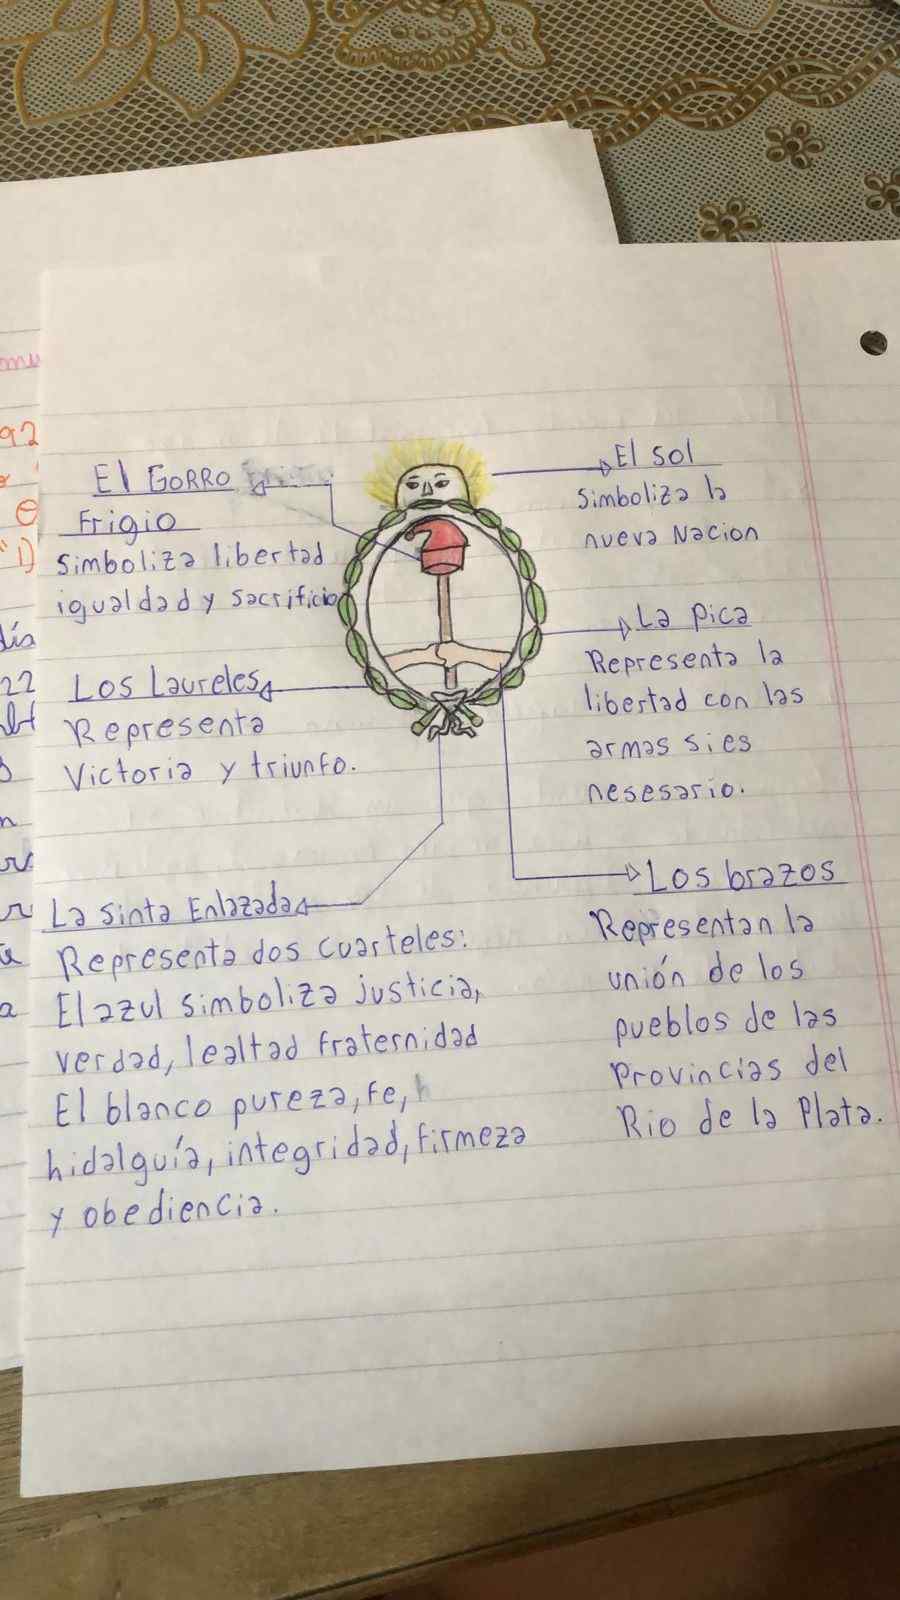 El Gorro
Frigio
Simboliza libertad
igualdad y sacrificio
Los Laureles
Representa
Victoria y triunfo.
La sinta Enlazada
Representa dos cuarteles:
El azul simboliza justicia,
verdad, lealtad fraternidad
El blanco pureza, fe, h
hidalguía, integridad, firmeza
y obediencia.
El sol
Simboliza la
nueva Nacion
La pica
Representa la
libertad con las
armas si es
nesesario.
Los brazos
Representan la
unión de los
pueblos de las
Provincias del
Rio de la Plata.
92
1)
22